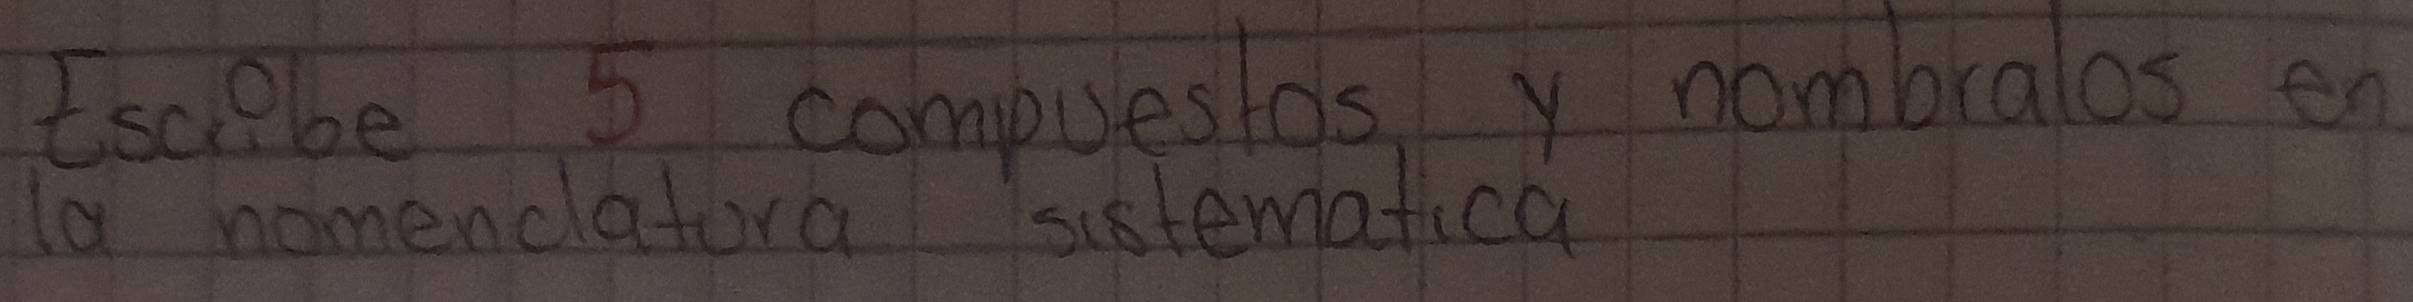 Escribe 5 compuestos, y nombralos en
la nomenclatura sistematica